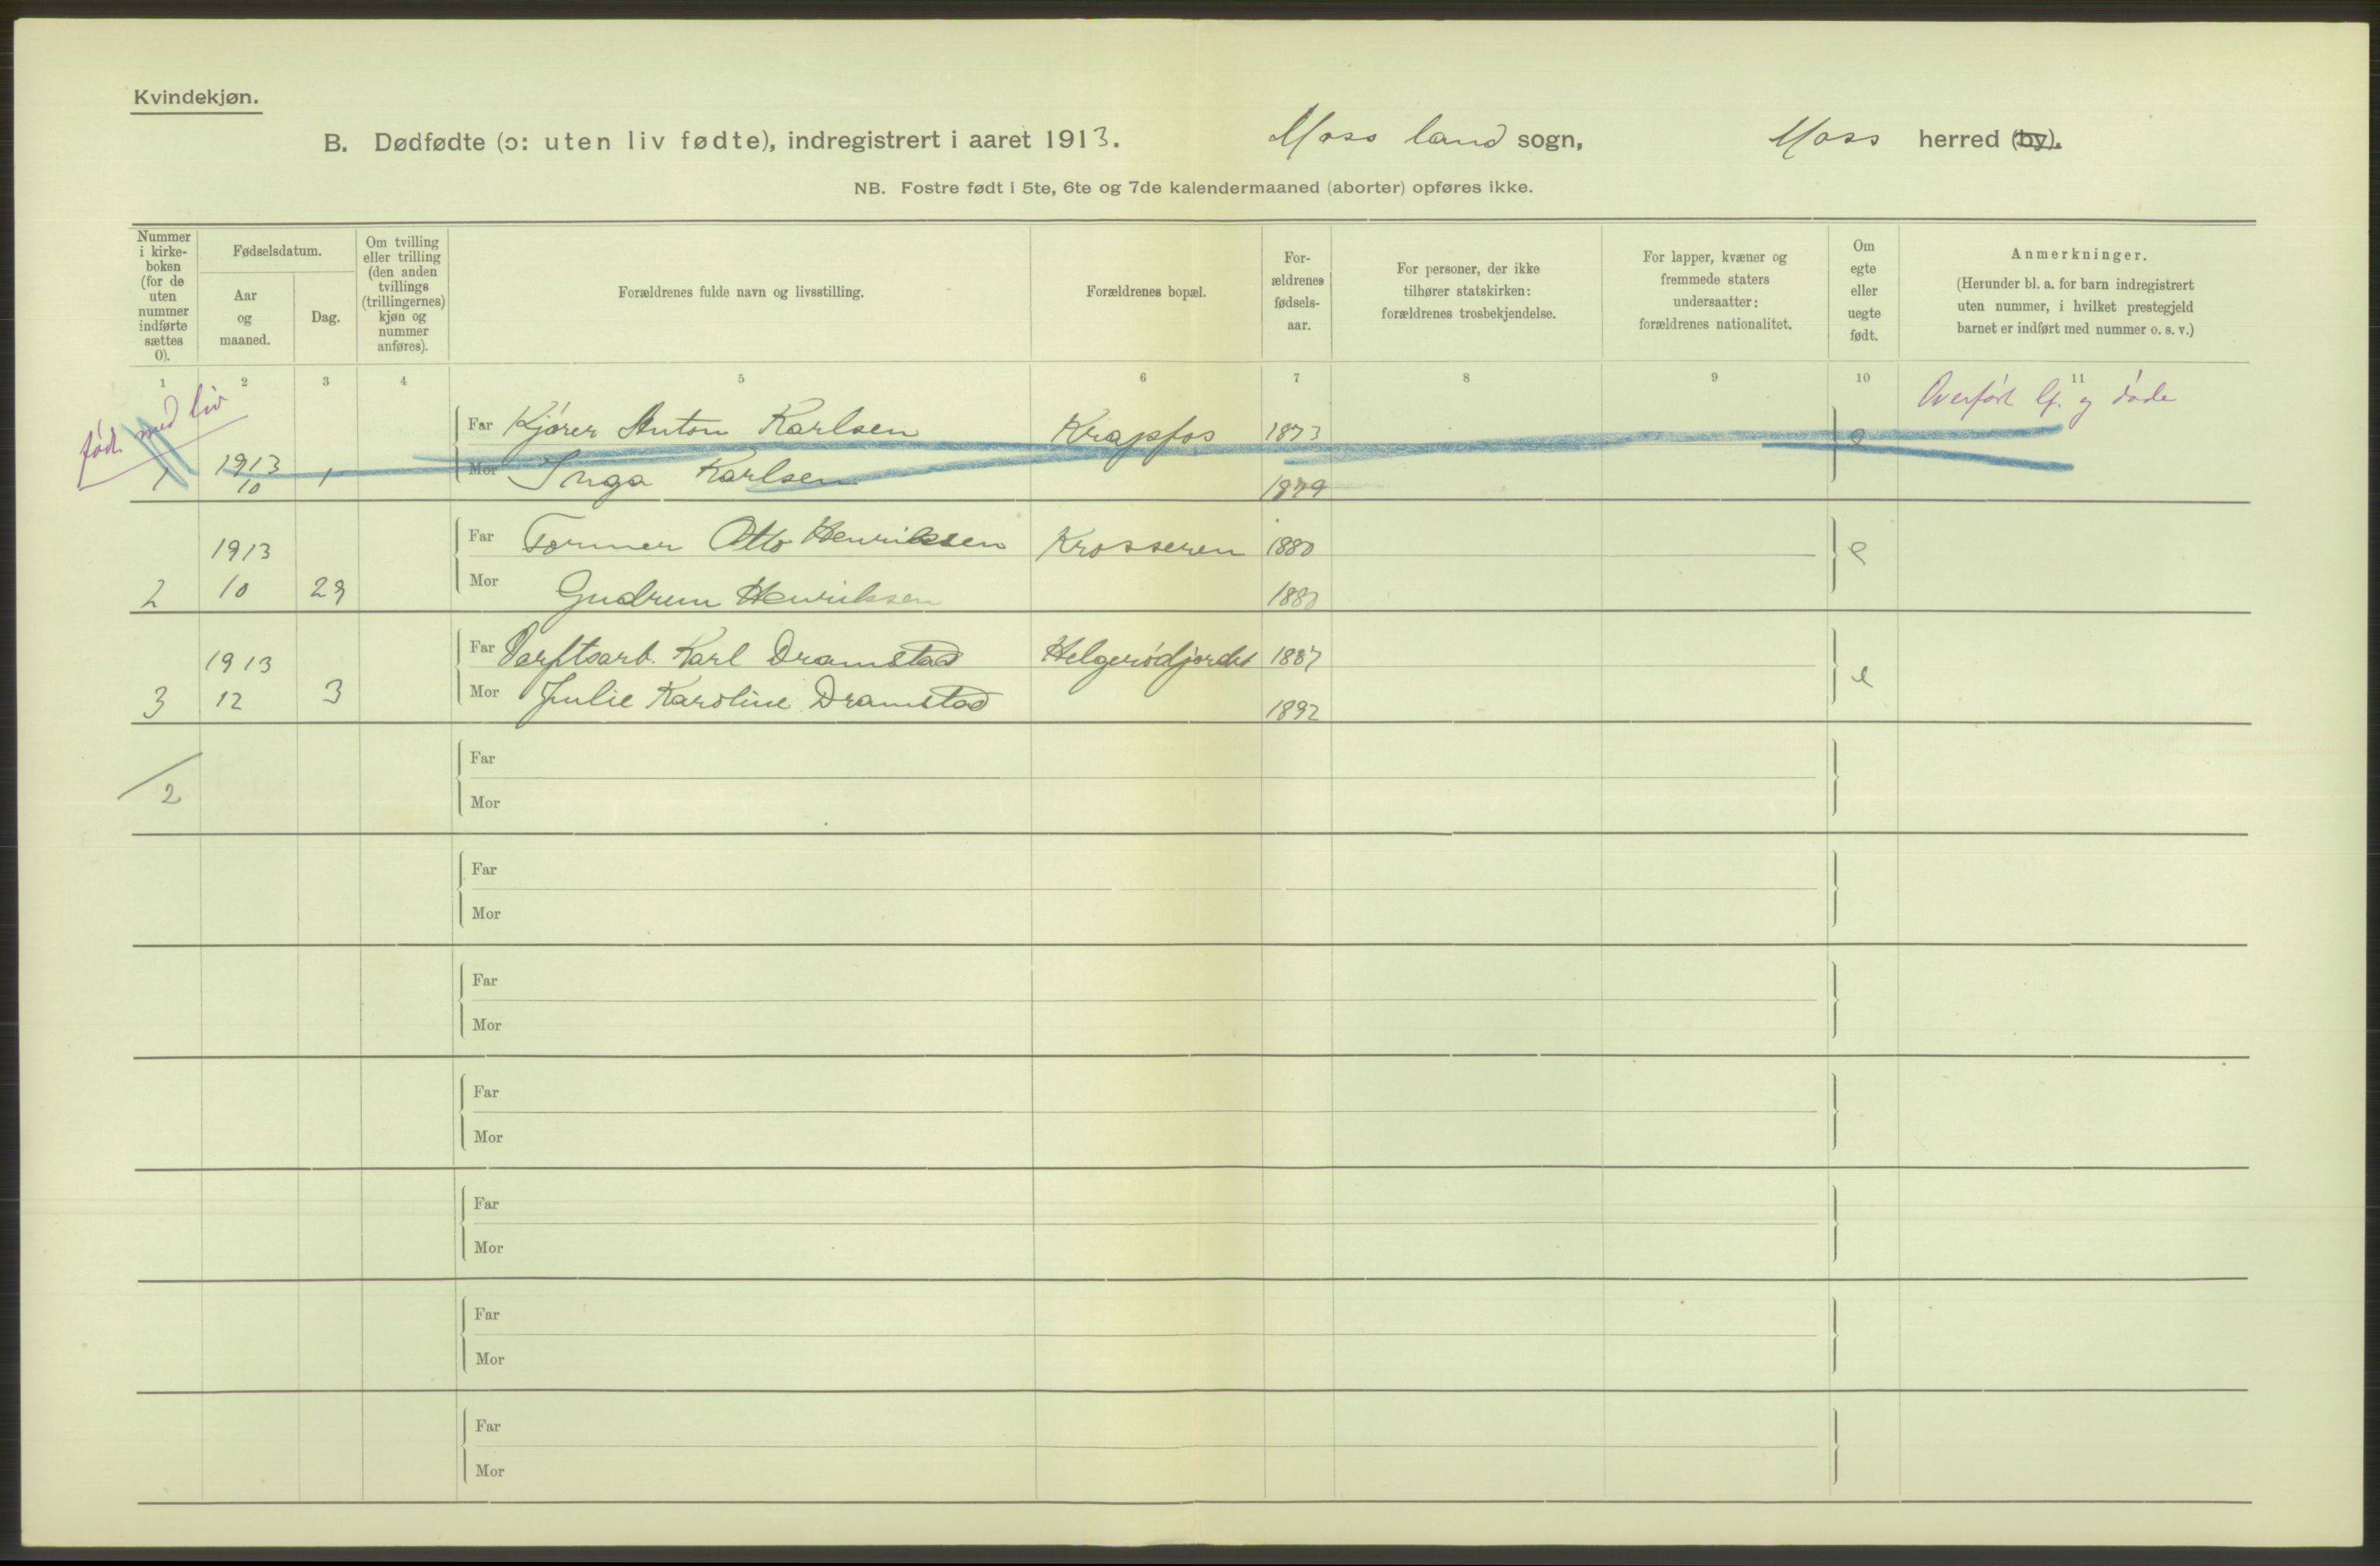 Kvindekjøn.
B. Dødfødte (ɔ: uten liv fødte), indregistrert i aaret 1913. Moss land sogn, Moss herred (by).
NB. Fostre født i 5te, 6te og 7de kalendermaaned (aborter) opføres ikke.
Nummer i kirke-boken (for de uten nummer indførte sættes 0).
Fødselsdatum.
Aar og maaned.
Dag.
Om tvilling eller trilling (den anden tvillings (trillingernes) kjøn og nummer anføres).
Forældrenes fulde navn og livsstilling.
Forældrenes bopæl.
For-ældrenes fødsels-aar.
For personer, der ikke tilhører statskirken: forældrenes trosbekjendelse.
For lapper, kvæner og fremmede staters undersaatter: forældrenes nationalitet.
Om egte eller uegte født.
Anmerkninger.
(Herunder bl. a. for barn indregistrert uten nummer, i hvilket prestegjeld barnet er indført med nummer o. s. v.)
1 2 3 4 5 6 7 8 9 10 11
født med liv
Overført lf. og døde
Far Kjører Anton Karlsen Krapfos 1873 e
1 1913 10 1 Mor Inga Karlsen 1879
1913 Far Former Otto Henriksen Krosseren 1880 e
2 10 29 Mor Gudrun Henriksen 1880
1913 Far Verftsarb. Karl Dramstad Helgerødjordet 1887 e
3 12 3 Mor Julie Karoline Dramstad 1892
Far
2 Mor
Far
Mor
Far
Mor
Far
Mor
Far
Mor
Far
Mor
Far
Mor